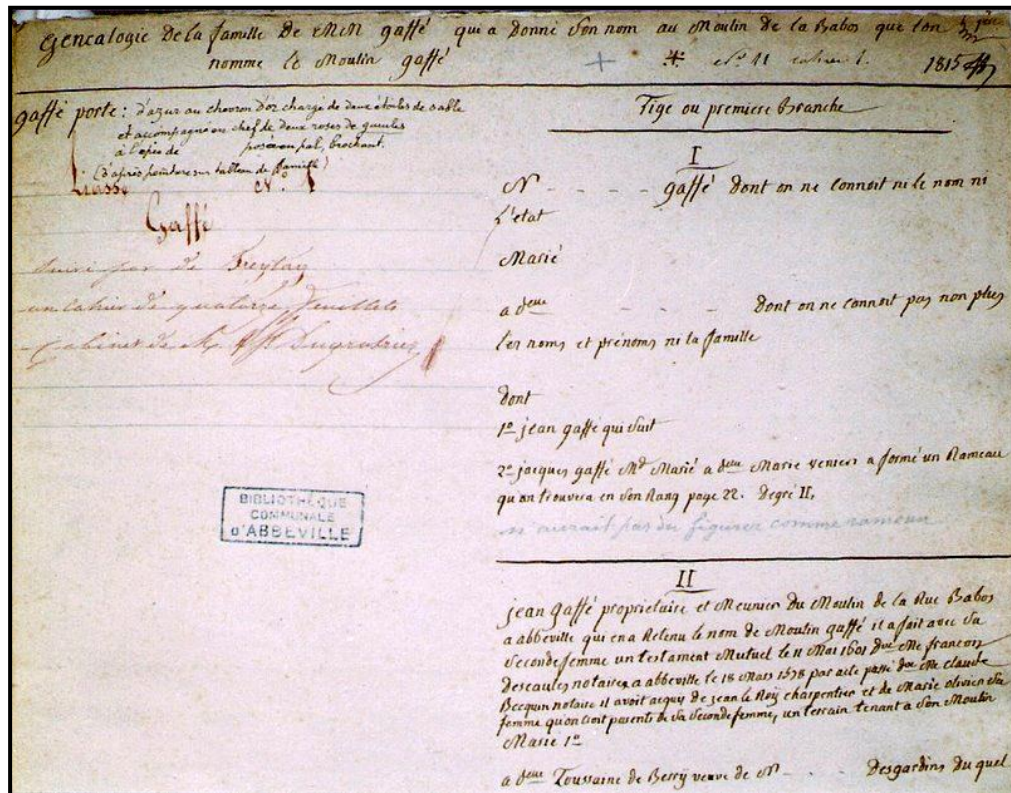 Genealogie de la famille de MM gaffé qui a donné son nom au Moulin de la Babos que l'on
nomme le Moulin gaffé + * N° 11 cahier 1. 1815
gaffé porte: d'azur au chevron d'or chargé de deux étoiles de sable
et accompagné en chef de deux roses de gueules
à l'épée de posée en pal, brochant.
(d'après peinture sur tableau de famille)
Liasse N°
Gaffé
suivi par de Freytag
un cahier de quatorze feuillets
Cabinet de M.
BIBLIOTHÈQUE
COMMUNALE
d'ABBEVILLE
Tige ou premiere Branche
I
N - - - - gaffé dont on ne connoit ni le nom ni
l'etat
Marié
a deue - - - dont on ne connoit pas non plus
les noms et prénoms ni la famille
dont
1º jean gaffé qui suit
2º jacques gaffé Md Marié a deue Marie veniers a formé un Rameau
qu'on trouvera en son Rang page 22. Degré II,
n'aurait pas du figurer comme rameau
II
jean gaffé proprietaire et Meunier du Moulin de la Rue Babos
a abbeville qui en a Retenu le nom de Moulin gaffé il a fait avec sa
seconde femme un testament Mutuel le 11 Mai 1601 dvt Me francois
descaules notaire a abbeville le 18 Mars 1578 par acte passé dvt Me claude
Becquin notaire il avoit acquis de jean le Roy charpentier et de Marie olivier sa
femme qu'on croit parents de sa seconde femme, un terrain tenant a son Moulin
Marié 1º
a deue Toussaine de Berry veuve de N - - . Desgardins du quel